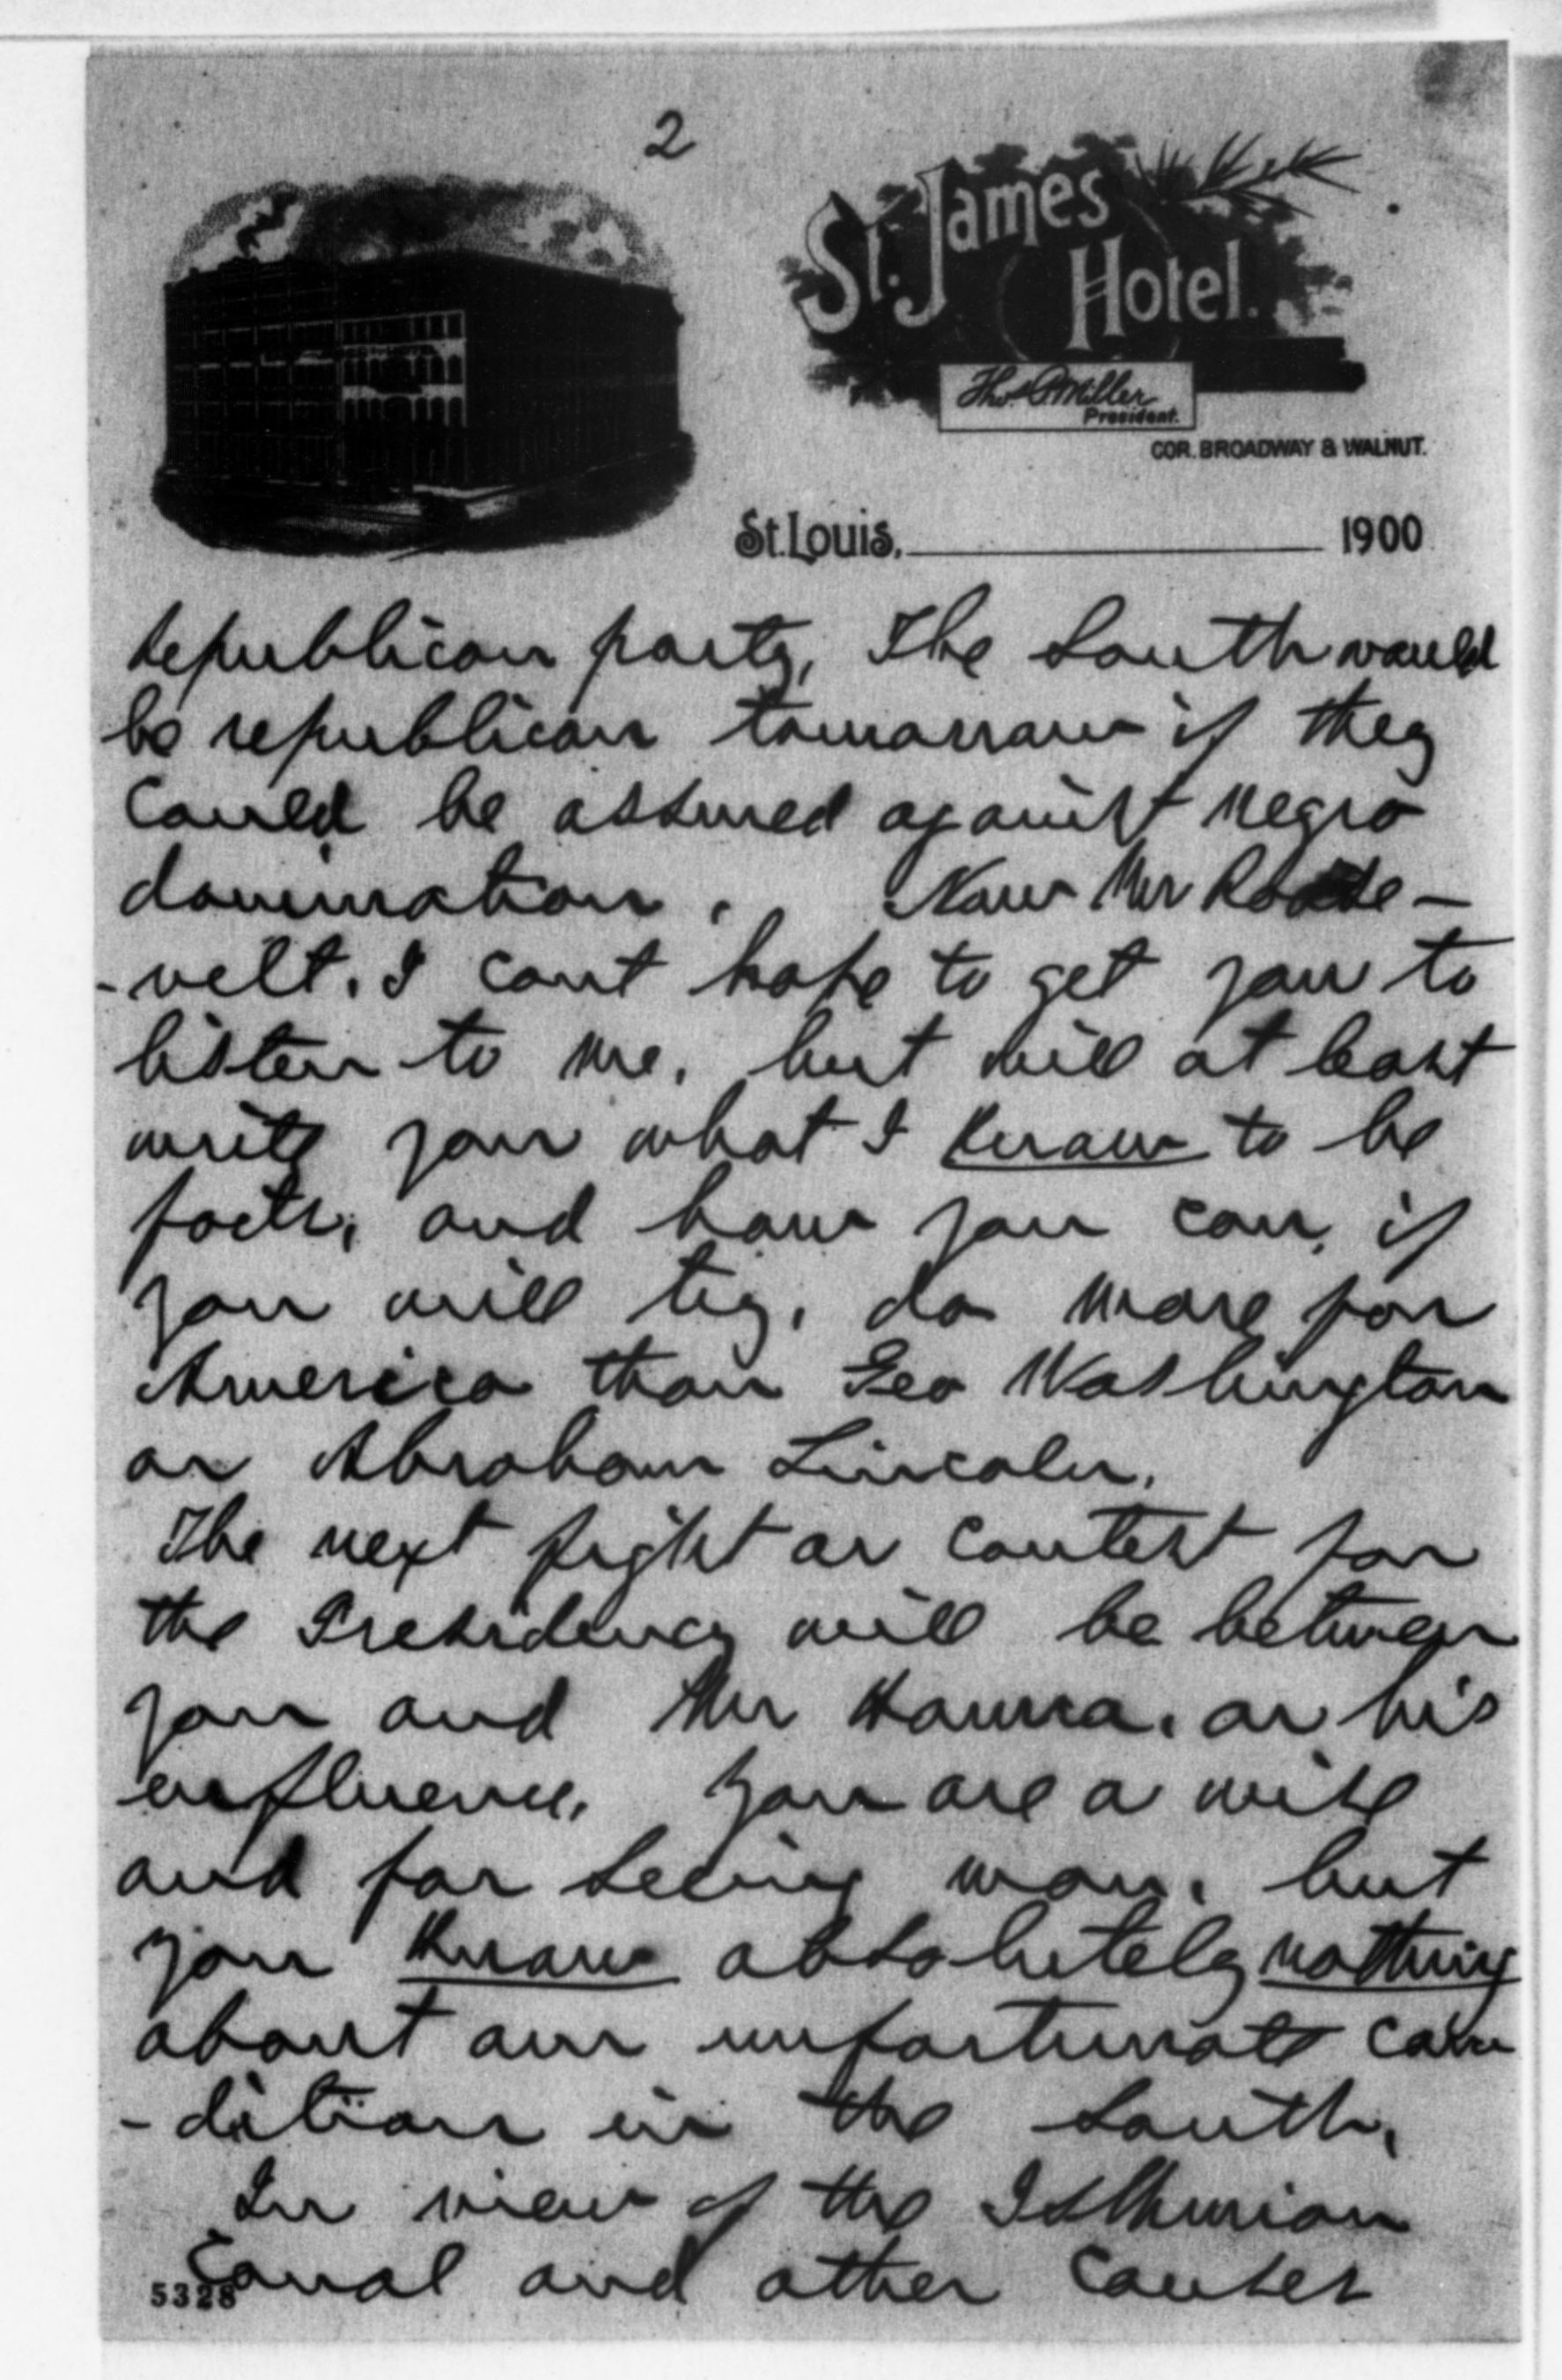 2
St. James
Hotel.
Thos. P. Miller
President.
COR. BROADWAY & WALNUT.
St. Louis, 1900
republican party, The South would
be republican tomorrow if they
could be assured against negro
domination. Now Mr Roose-
-velt. I cant hope to get you to
listen to me, but will at least
write you what I know to be
facts, and how you can, if
you will try, do more for
America than Geo Washington
or Abraham Lincoln.
The next fight or contest for
the Presidency will be between
you and Mr Hanna. or his
influence, You are a wise
and far seeing man, but
you know absolutely nothing
about our unfortunate con
-dition in the South,
In view of the Isthmian
Canal and other causes
5328